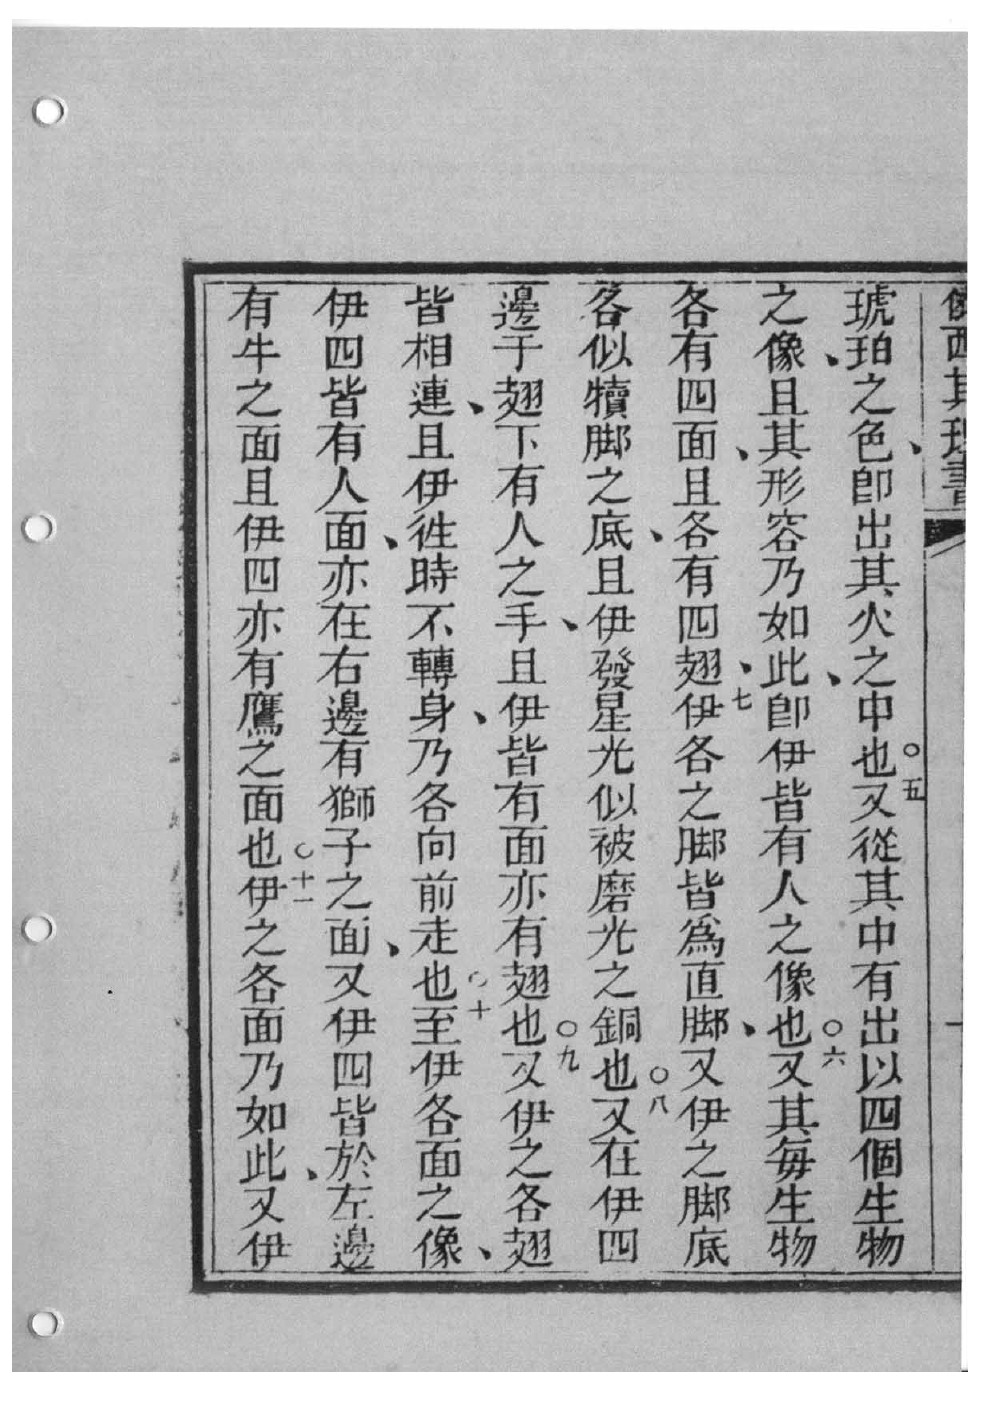 西其理書
琥珀之色、卽出其火之中也○五又從其中有出以四個生物
之像、且其形容乃如此、卽伊皆有人之像也○六又其每生物
各有四面、且各有四翅、七伊各之脚皆爲直脚、又伊之脚底
各似犢脚之底、且伊發星光似被磨光之銅也○八又在伊四
邊于翅下有人之手、且伊皆有面亦有翅也○九又伊之各翅
皆相連、且伊徃時不轉身、乃各向前走也○十至伊各面之像、
伊四皆有人面、亦在右邊有獅子之面、又伊四皆於左邊
有牛之面且伊四亦有鷹之面也○十一伊之各面乃如此、又伊
一